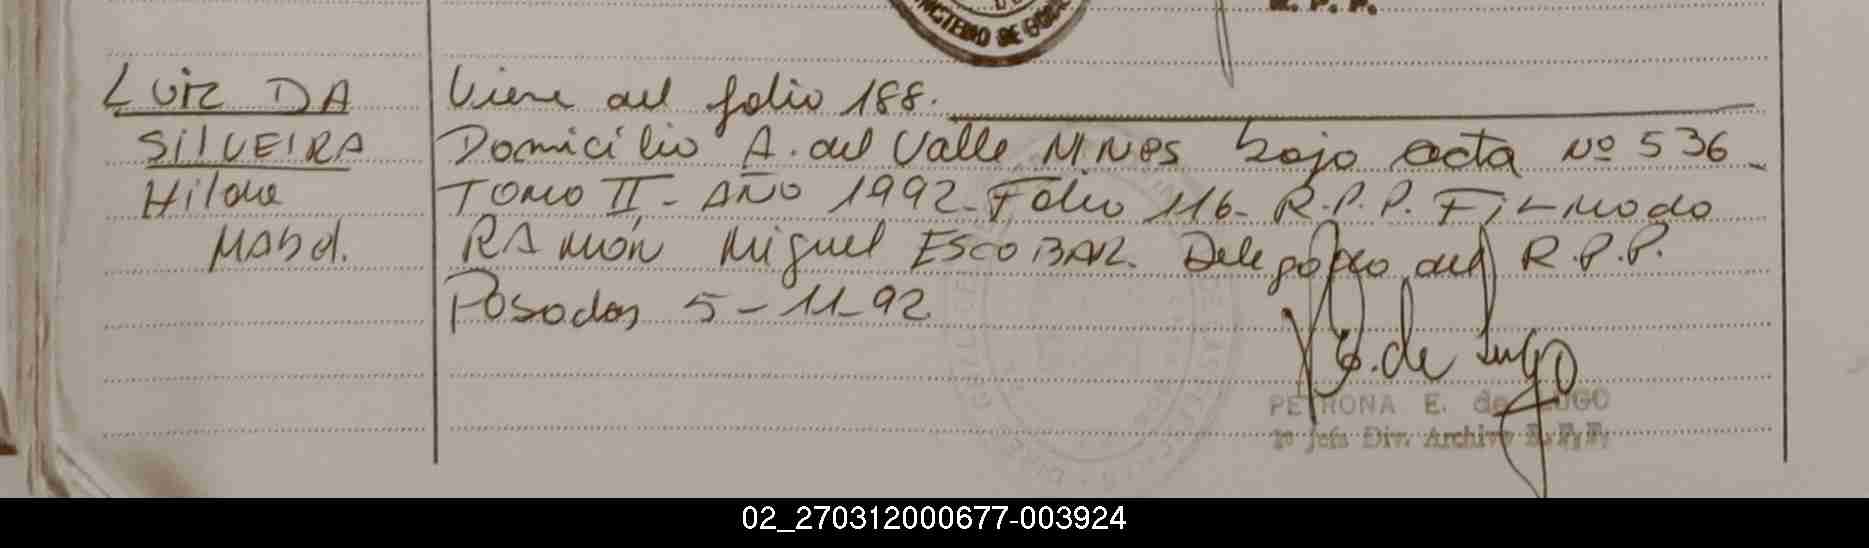 MINISTERIO DE GOB
R. P. P.
LUIZ DA
SILVEIRA
Hilda
Mabel.
Viene del folio 188.
Domicilio A. del Valle Mnes bajo acta Nº 536
TOMO II - AÑO 1992 - Folio 116 - R.P.P. Firmado
RAMÓN Miguel ESCOBAR. Delegado del R.P.P.
Posadas 5-11-92
P. E. de Lugo
PETRONA E. de LUGO
1º Jefe Div. Archivo R.P.P.
02_270312000677-003924